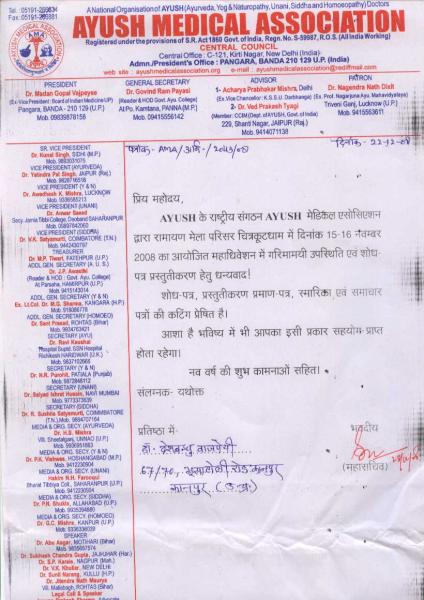 Tel. : 05191-
Fax: 05191-
A National Organisation of AYUSH (Ayurveda, Yog & Naturopathy, Unani, Siddha and Homoeopathy) Doctors
AYUSH MEDICAL ASSOCIATION
Registered under the provisions of S.R. Act 1860 Govt. of India, Regn. No. S-59987, R.O.S. (All India Working)
CENTRAL COUNCIL
Central Office : C-121, Kirti Nagar, New Delhi (India)
Admn./President's Office : PANGARA, BANDA 210 129 U.P. (India)
web site : ayushmedicalassociation.org e-mail : ayushmedicalassociation@rediffmail.com
PRESIDENT
Dr. Madan Gopal Vajpeyee
(Ex-Vice President : Board of Indian Medicine UP)
Pangara, BANDA - 210 129 (U.P.)
Mob: 09839878158
GENERAL SECRETARY
Dr. Govind Ram Payasi
(Reader & HOD Govt. Ayu. College)
At/Ps. Kamtana, PANNA (M.P.)
Mob: 09415556142
ADVISOR
1- Acharya Prabhakar Mishra, Delhi
(Ex. Vice Chancellor : K.S.S.U. Darbhanga)
2- Dr. Ved Prakash Tyagi
(Member : CCIM (Dept. of AYUSH, Govt. of India)
229, Shanti Nagar, JAIPUR (Raj.)
Mob: 9414071138
PATRON
Dr. Nagendra Nath Dixit
(Ex. Prof. Nagarjuna Ayu. Mahavidyalaya)
Triveni Ganj, Lucknow (U.P.)
Mob: 9415563611
SR. VICE PRESIDENT
Dr. Kunal Singh, SIDHI (M.P.)
VICE PRESIDENT (AYURVEDA)
Dr. Yatindra Pal Singh, JAIPUR (Raj.)
VICE PRESIDENT (Y & N)
Dr. Awadhesh K. Mishra, LUCKNOW
VICE PRESIDENT (UNANI)
Dr. Anwar Saeed
VICE PRESIDENT (SIDDHA)
Dr. V.K. Satyamurti, COIMBATORE (T.N.)
TREASURER
Dr. M.P. Tiwari, FATEHPUR (U.P.)
ADDL. GEN. SECRETARY (A, U, S)
Dr. J.P. Awasthi
(Reader & HOD : Govt. Ayu. College)
At Parsaha, HAMIRPUR (U.P.)
ADDL. GEN. SECRETARY (Y & N)
Ex. Lt.Col. Dr. M.G. Sharma, KANGARA (H.P.)
ADDL. GEN. SECRETARY (HOMOEO)
Dr. Sant Prasad, ROHTAS (Bihar)
SECRETARY (AYU)
Dr. Ravi Kaushal
Hospital Supdt. SSN Hospital
Richikesh HARIDWAR (U.K.)
SECRETARY (Y & N)
Dr. N.R. Purohit, PATIALA (Punjab)
SECRETARY (UNANI)
Dr. Saiyad Ishrat Husain, NAVI MUMBAI
SECRETARY (SIDDHA)
Dr. R. Sushila Satyamurti, COIMBATORE
MEDIA & ORG. SECY (AYURVEDA)
Dr. H.S. Mishra
UNNAO (U.P.)
MEDIA & ORG. SECY. (Y & N)
Dr. P.K. Vishnoe, HOSHANGABAD (M.P.)
MEDIA & ORG. SECY. (UNANI)
Hakim N.H. Farooqui
Bharat Tibbiya Coll., SAHARANPUR (U.P.)
MEDIA & ORG. SECY. (SIDDHA)
Dr. P.N. Shukla, ALLAHABAD (U.P.)
MEDIA & ORG. SECY (HOMOEO)
Dr. G.C. Mishra, KANPUR (U.P.)
SPEAKER
Dr. Abu Asgar, MOTIHARI (Bihar)
Dr. Subhash Chandra Gupta, JAJKUHAR (Har.)
Dr. S.P. Karale, NAGPUR (Mah.)
Dr. V.K. Khullar, NEW DELHI
Dr. Sunil Narang, KULLU (H.P.)
Dr. Jitendra Nath Maurya
Legal Cell & Speaker
पत्रांक- AMA/अधि-/2043/08
दिनांक- 22-12-08
प्रिय महोदय,
AYUSH के राष्ट्रीय संगठन AYUSH मेडिकल एसोसिएशन
द्वारा रामायण मेला परिसर चित्रकूटधाम में दिनांक 15-16 नवम्बर
2008 का आयोजित महाधिवेशन में गरिमामयी उपस्थिति एवं शोध-
पत्र प्रस्तुतीकरण हेतु धन्यवाद!
शोध-पत्र, प्रस्तुतीकरण प्रमाण-पत्र, स्मारिका एवं समाचार
पत्रों की कटिंग प्रेषित है।
आशा है भविष्य में भी आपका इसी प्रकार सहयोग प्राप्त
होता रहेगा।
नव वर्ष की शुभ कामनाओं सहित।
संलग्नक- यथोक्त
प्रतिष्ठा में-
डॉ. देशबन्धु बाजपेयी
67/70, भूसाटोली रोड कानपुर
कानपुर (उ.प्र.)
भवदीय
(महासचिव)